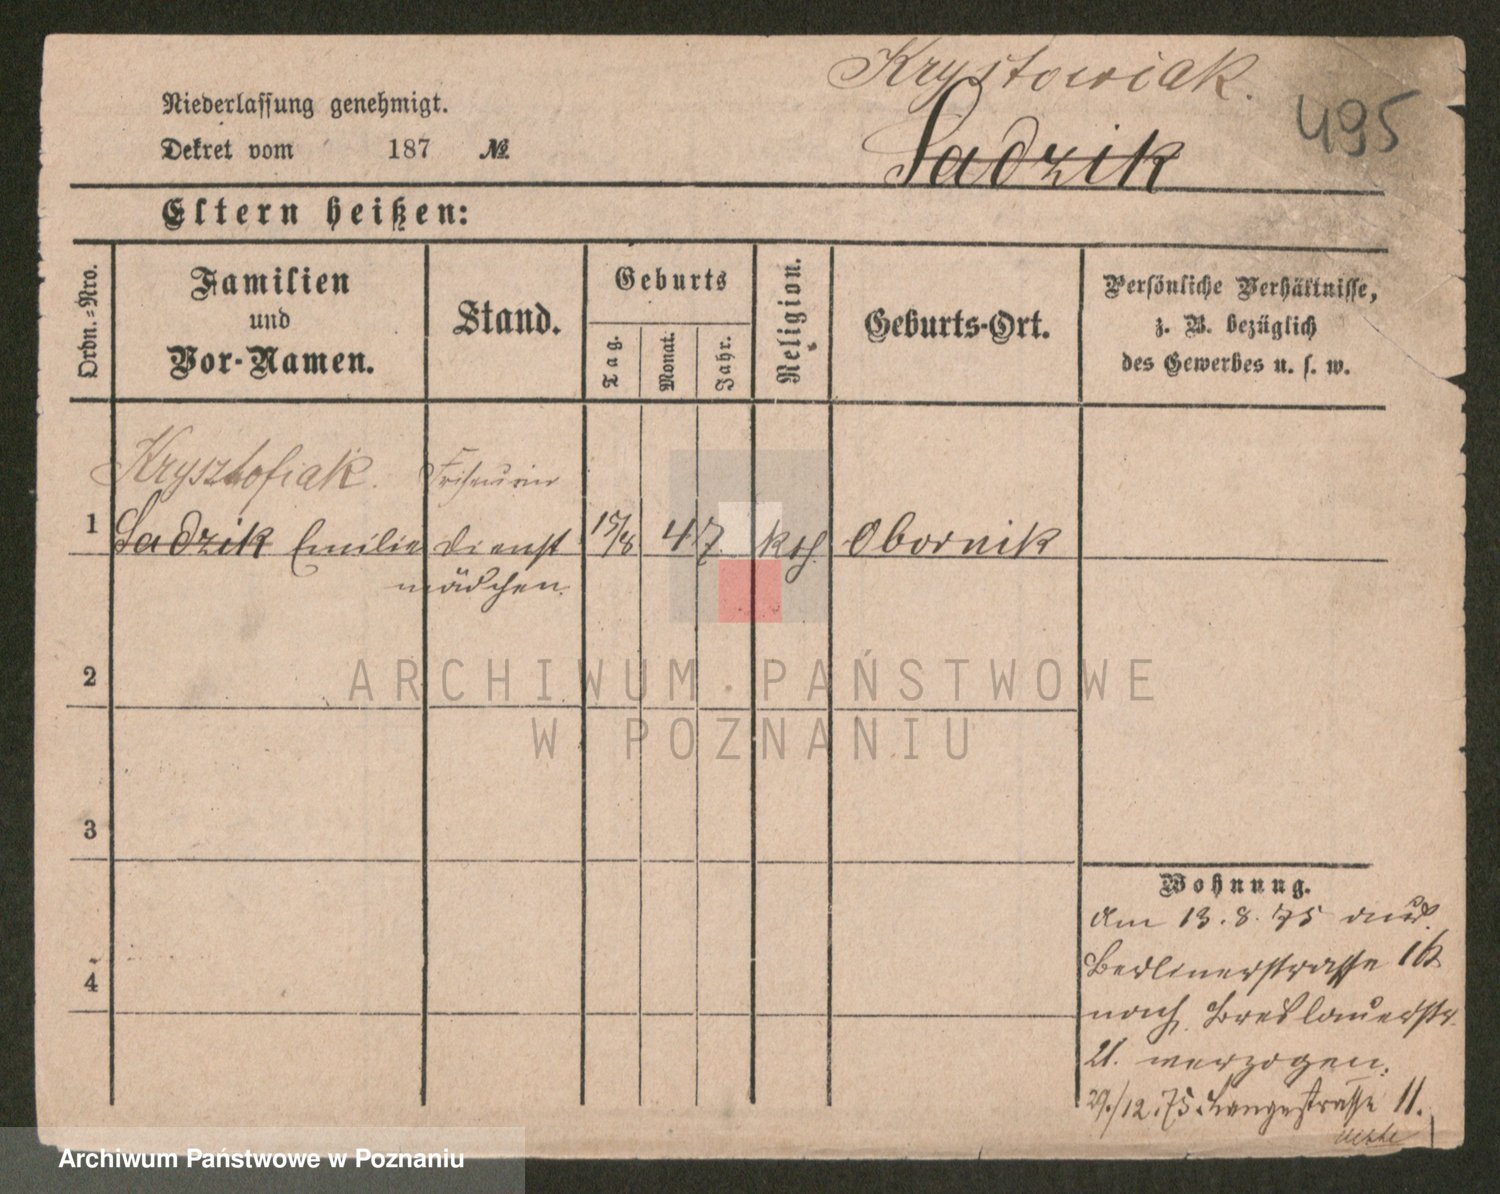 Krystowiak.
495
Niederlassung genehmigt.
Dekret vom 187 №
Sadzik
Eltern heißen:
Ordn.-Nro.
Familien
und
Vor-Namen.
Stand.
Geburts
Tag.
Monat.
Jahr.
Religion.
Geburts-Ort.
Persönliche Verhältnisse,
z. B. bezüglich
des Gewerbes u. s. w.
Krysztofiak. Friseurin
1 Sadzik Emilie Dienst 15/8 47. kth. Obornik
mädchen.
2
3
4
Wohnung.
Am 13.8.75 aus
Berlinerstrasse 16
nach Breslauerstr.
21. verzogen.
29./12.75. Langestrasse 11.
ARCHIWUM PAŃSTWOWE
W POZNANIU
Archiwum Państwowe w Poznaniu